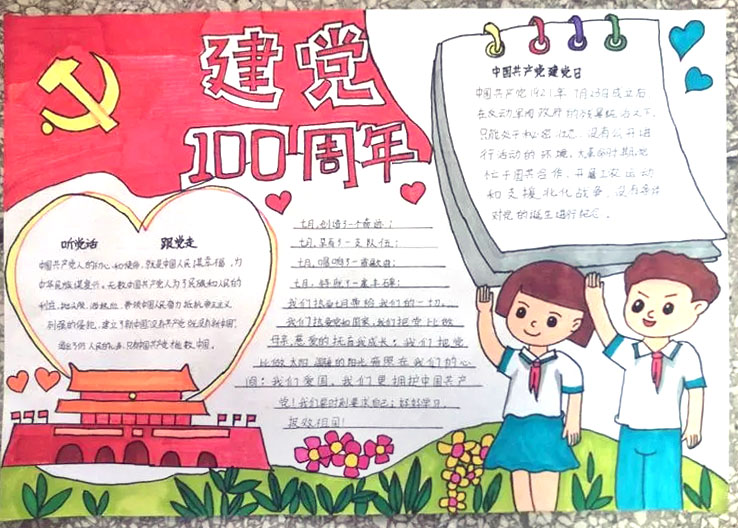 建党
100周年
中国共产党建党日
中国共产党1921年7月23日成立后,
在反动军阀政府的残暴统治之下,
只能处于秘密状态,没有公开进
行活动的环境,大革命时期,忙
忙于国共合作,开展工农运动
和支援北伐战争,没有条件
对党的诞生进行纪念。
听党话 跟党走
中国共产党人的初心和使命,就是中国人民谋幸福,为
中华民族谋复兴。无数中国共产党人为了民族和人民的
利益,抛头颅、洒热血,带领中国人民奋力抵抗帝国主义
列强的侵犯,建立了新中国"没有共产党就没有新中国",
道出了所人民的心声:只有中国共产党能救中国。
七月,创造了一个奇迹;
七月,早有了一支队伍;
七月,唱响了一首歌曲;
七月,
我们热爱七月带给我们的一切。
我们热爱党和国家,我们把党比做
母亲,慈爱的抚育我成长;我们把党
比做太阳,温暖的阳光普照在我们的心
间;我们爱国,我们更拥护中国共产
党!我们要时刻要求自己:好好学习,
报效祖国!